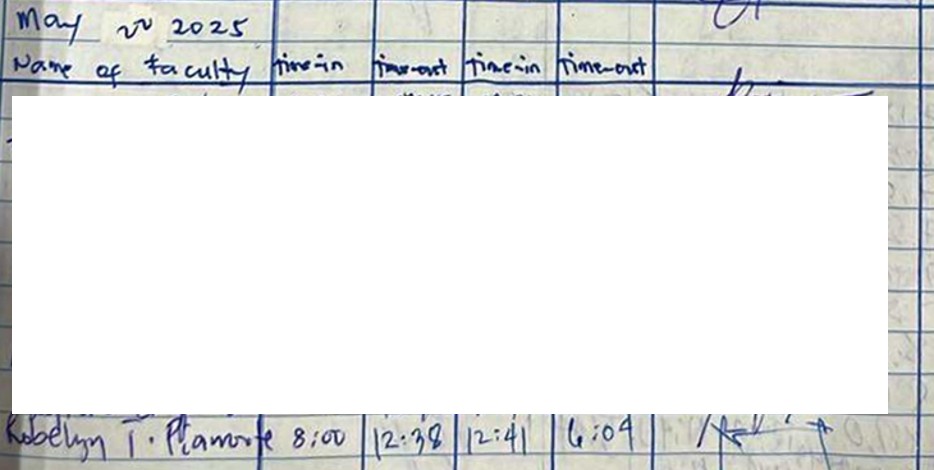 May 2025
Name of faculty time-in time-out time-in time-out
Robelyn T. 8:00 12:38 12:41 6:04